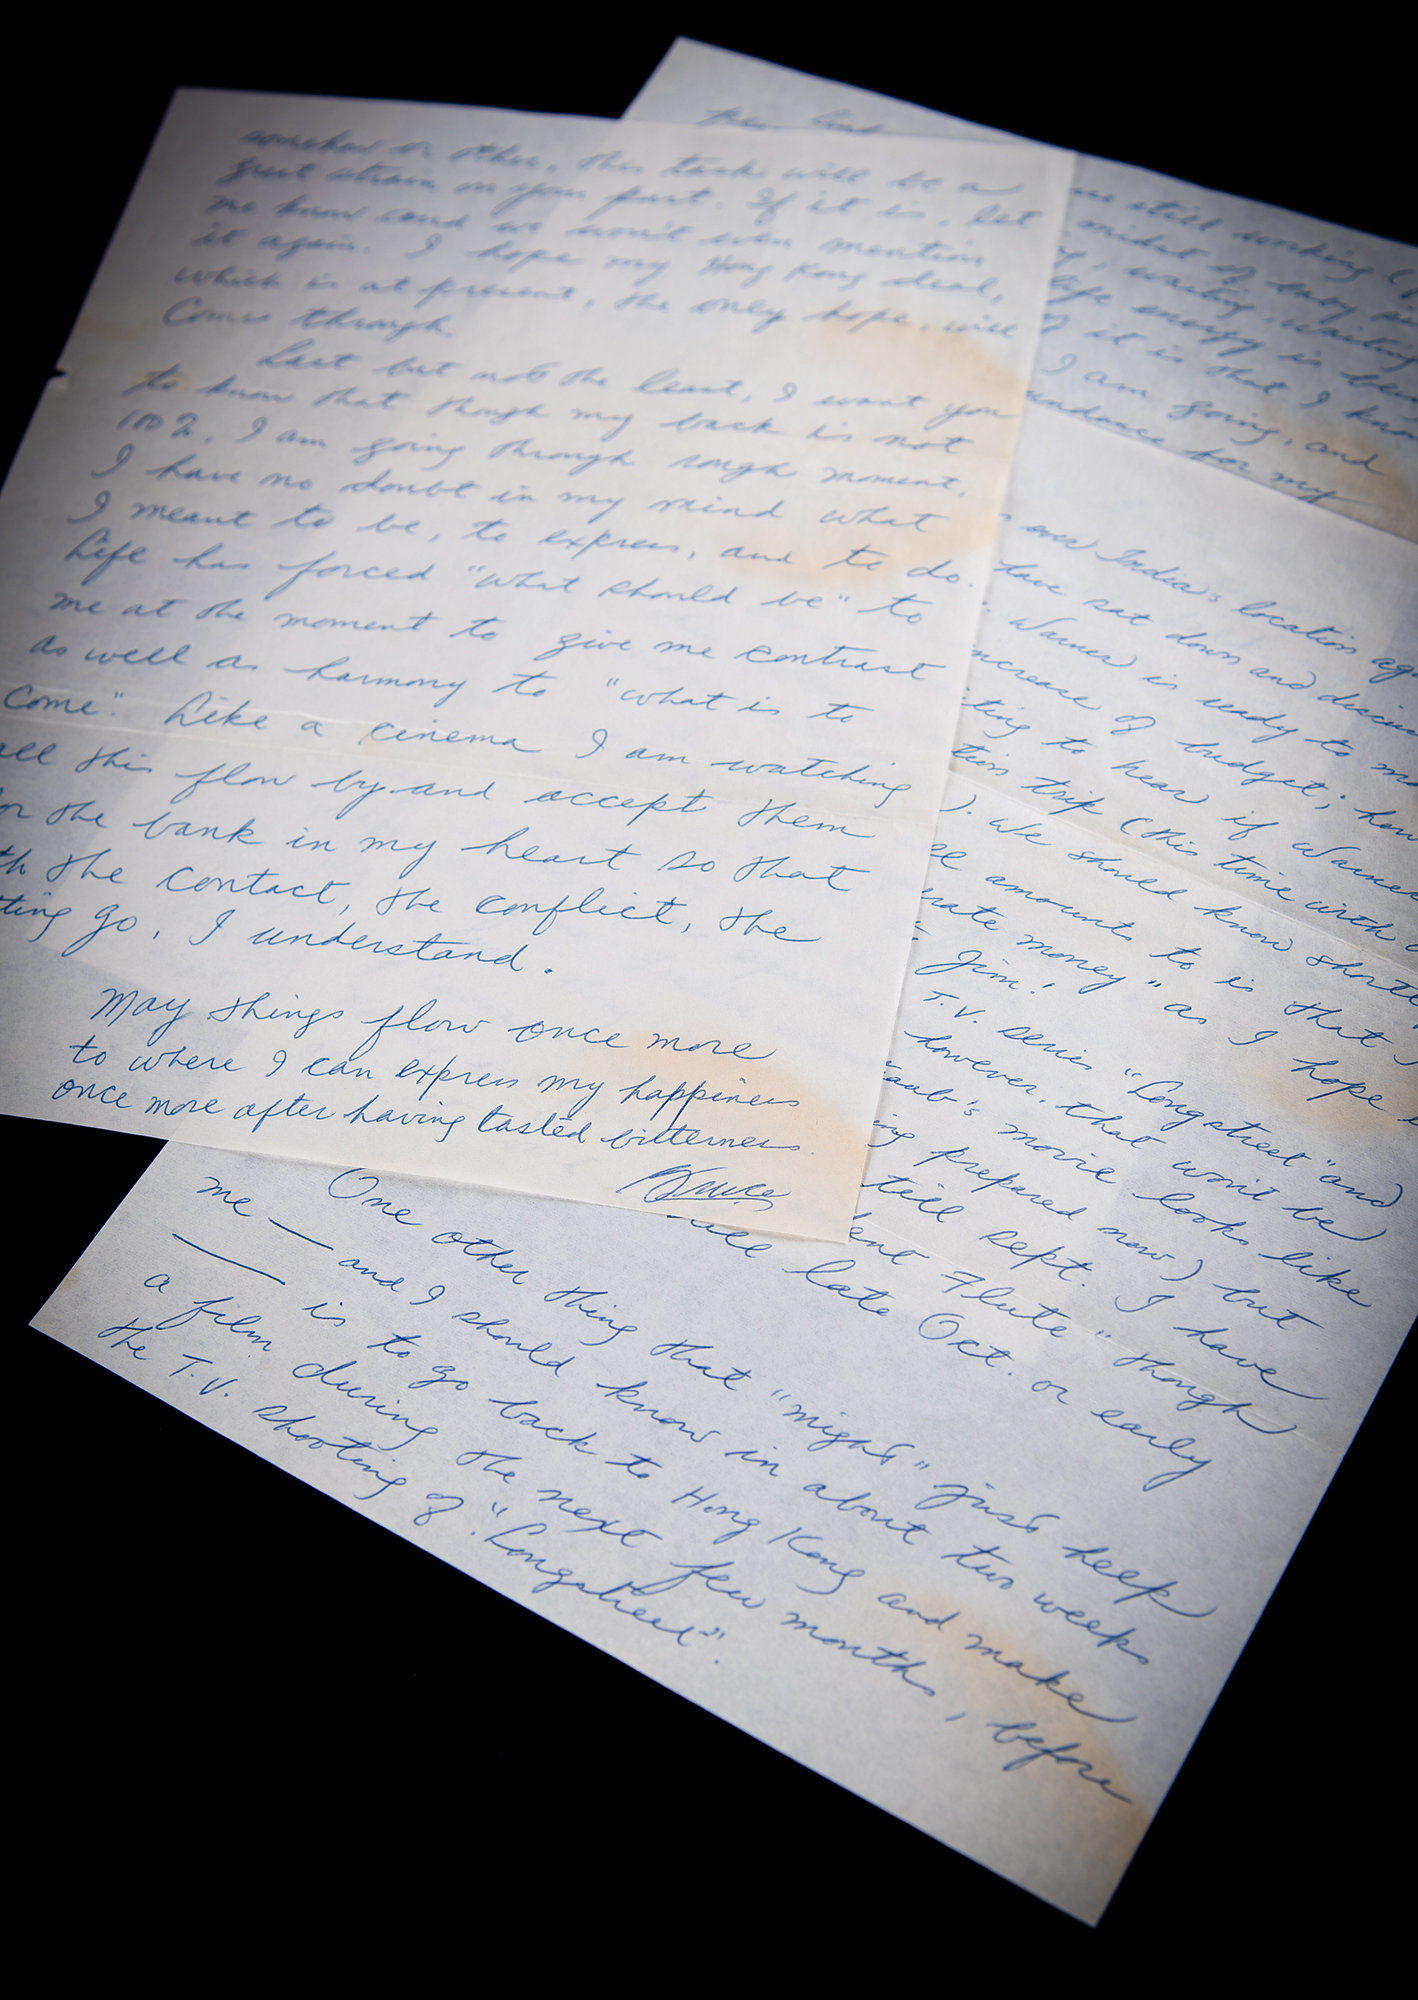 somehow or other, this task will be a
great strain on your part. If it is, let
me know and we won't even mention
it again. I hope my Hong Kong deal,
which is at present, the only hope, will
Come through.
Last but not the least, I want you
to know that though my back is not
100%, I am going through rough moment,
I have no doubt in my mind what
I meant to be, to express, and to do.
Life has forced "what should be" to
me at the moment to give me contrast
as well as harmony to "what is to
come". Like a cinema I am watching
all this flow by and accept them
for the bank in my heart so that
the contact, the conflict, the
go, I understand.
May things flow once more
to where I can express my happiness
once more after having tasted bitterness.
Bruce
Dear
still working
midst of
waiting, waiting
life energy is
it is that I know
I am going, and
for my
over India's location
have sat down and
Warner is ready to
increase of budget; how
to hear if Warner
trip (this time with
). We should know
amounts to is that
money" as I hope
Jim!
T.V. series "Longstreet" and
however, that won't be
movie looks like
prepared now) but
till Sept. I have
Flute" though
late Oct. or early
One other thing that "might" just keep
me — and I should know in about two weeks
— is to go back to Hong Kong and make
a film during the next few months, before
the T.V. shooting of "Longstreet".